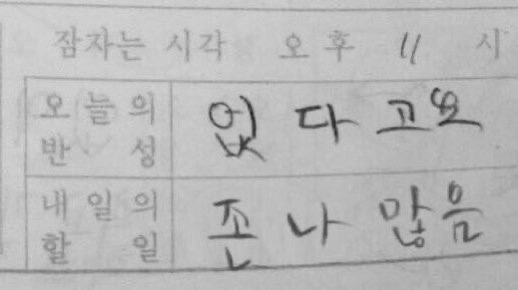 잠자는 시각 오후 11 시
오늘의 반성 없다고요
내일의 할 일 존나 많음